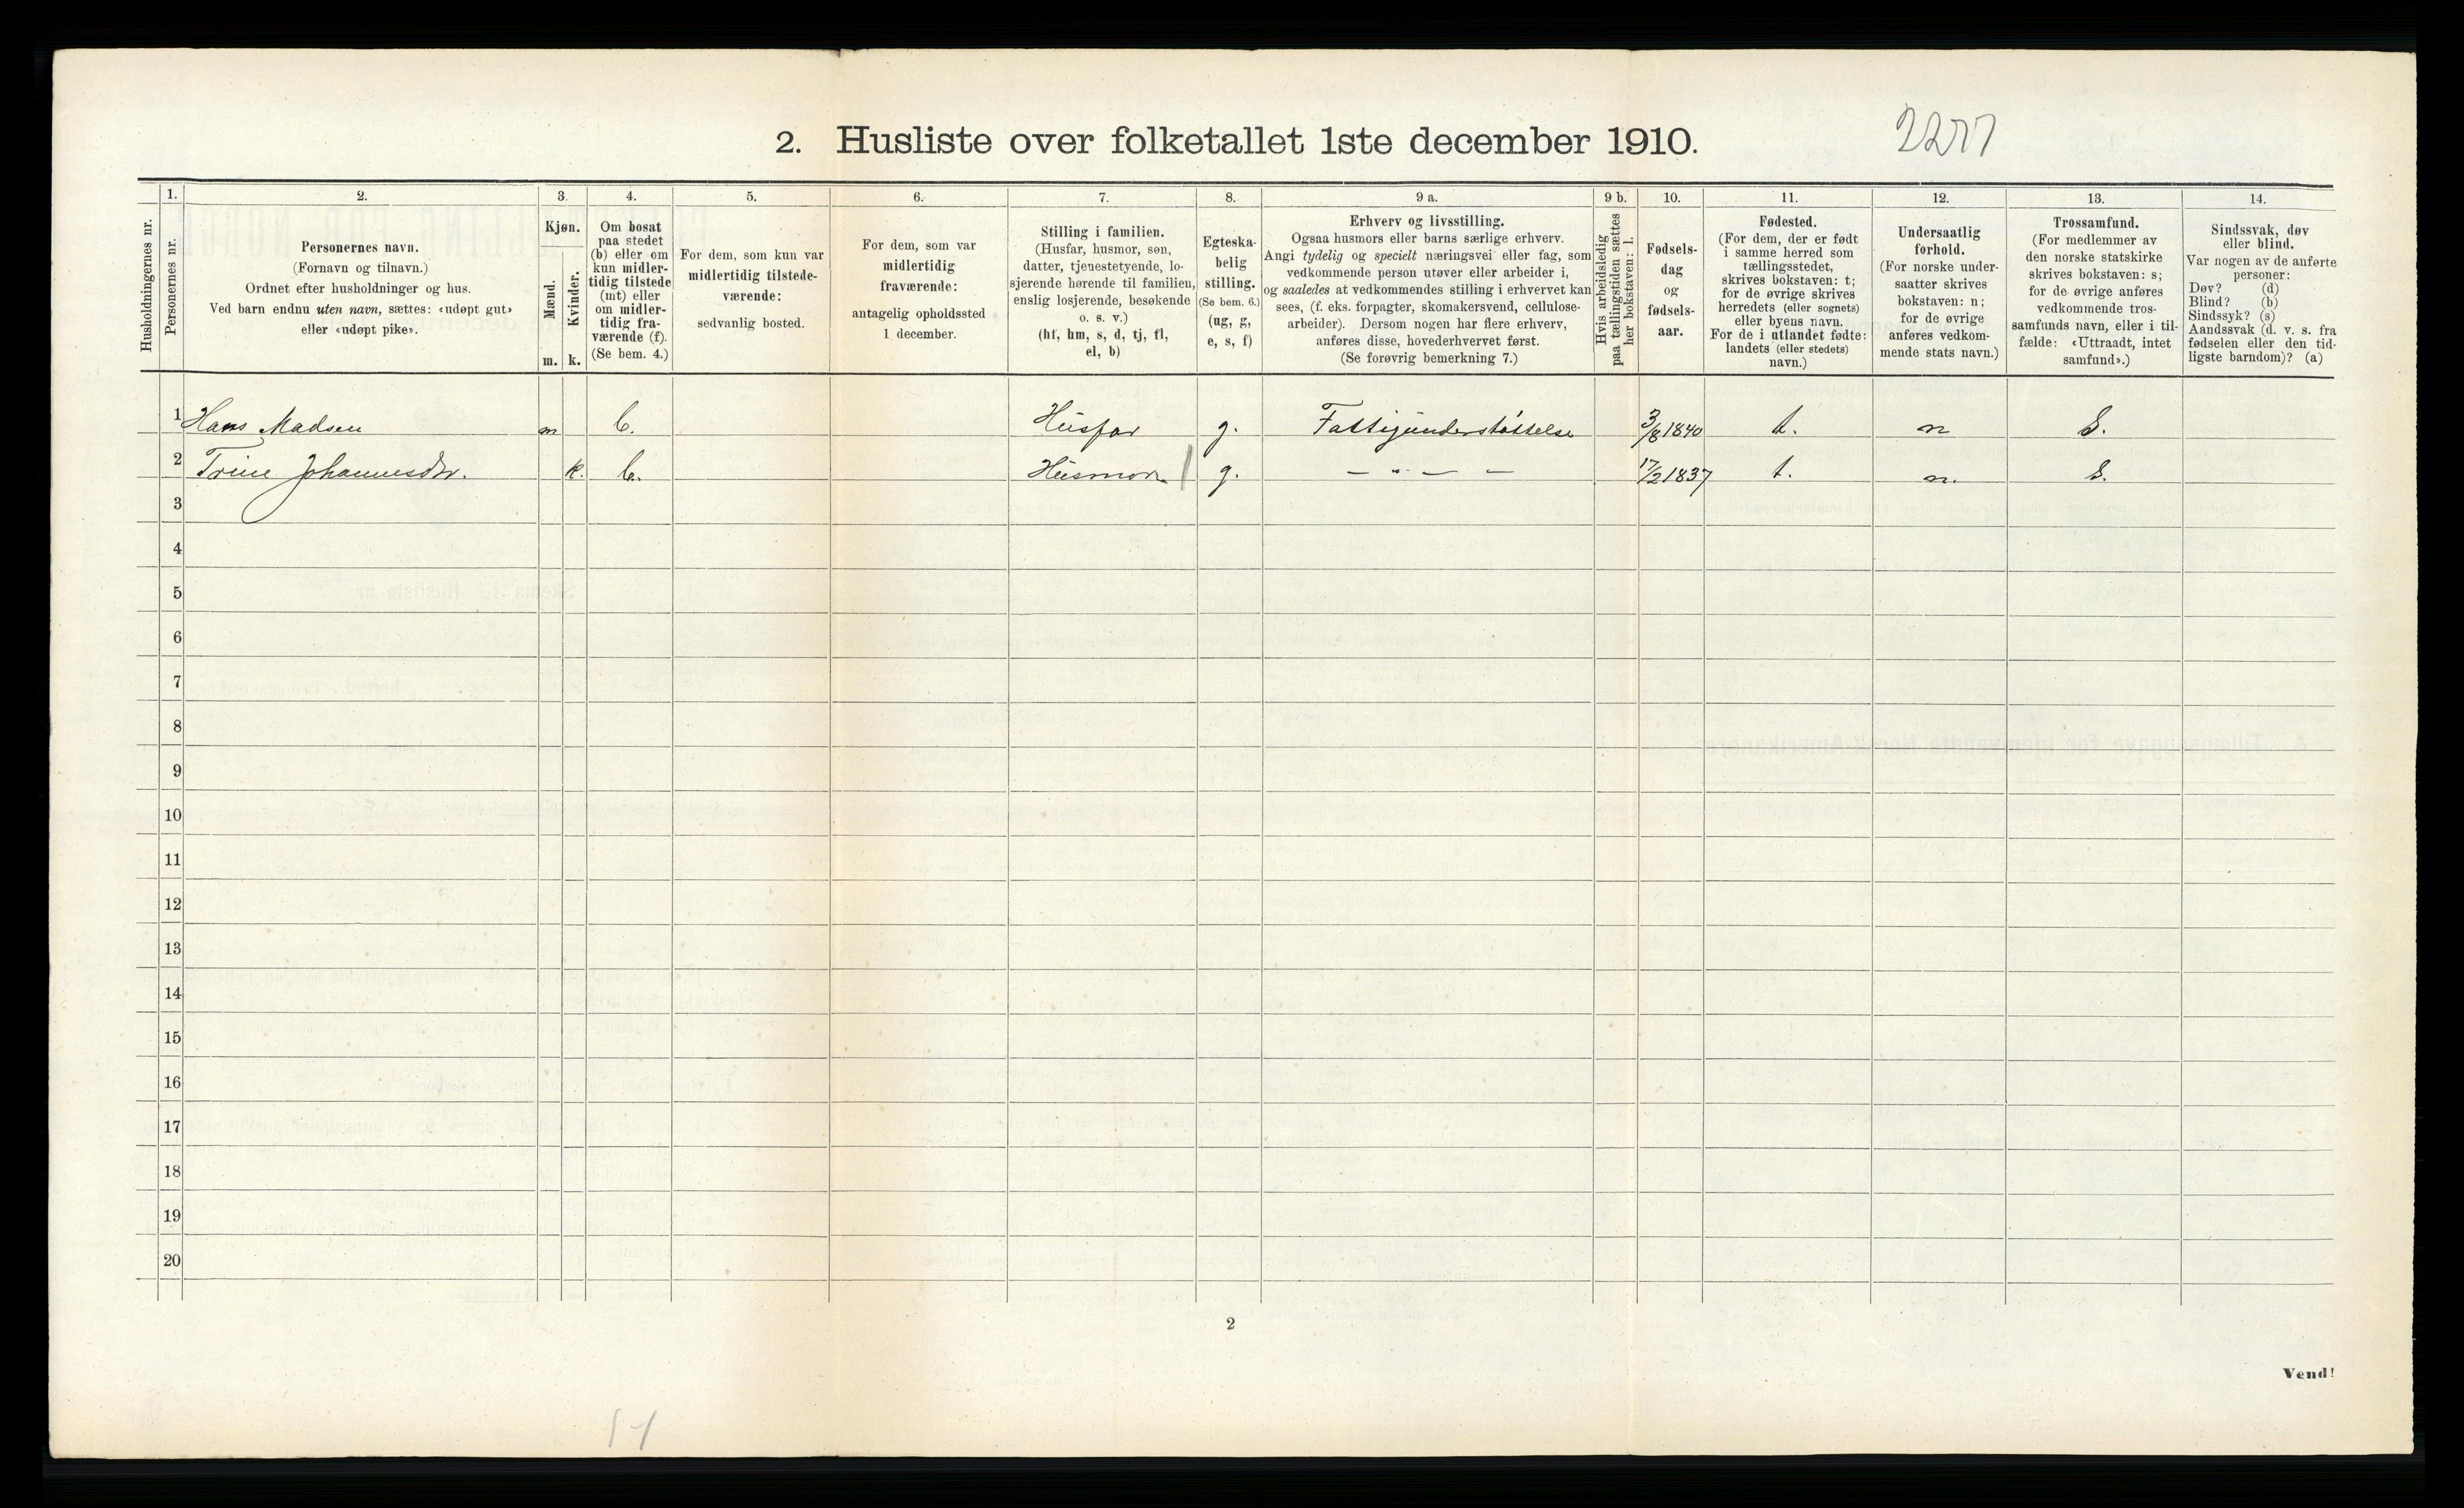 2. Husliste over folketallet 1ste december 1910.
1. 2. 3. 4. 5. 6. 7. 8. 9 a. 9 b. 10. 11. 12. 13. 14.
Husholdningernes nr.
Personernes nr.
Personernes navn.
(Fornavn og tilnavn.)
Ordnet efter husholdninger og hus.
Ved barn endnu uten navn, sættes: «udøpt gut»
eller «udøpt pike».
Kjøn.
Mænd.
Kvinder.
m. k.
Om bosat
paa stedet
(b) eller om
kun midler-
tidig tilstede
(mt) eller
om midler-
tidig fra-
værende (f).
(Se bem. 4.)
For dem, som kun var
midlertidig tilstede-
værende:
sedvanlig bosted.
For dem, som var
midlertidig
fraværende:
antagelig opholdssted
1 december.
Stilling i familien.
(Husfar, husmor, søn,
datter, tjenestetyende, lo-
sjerende hørende til familien,
enslig losjerende, besøkende
o. s. v.)
(hf, hm, s, d, tj, fl,
el, b)
Egteska-
belig
stilling.
(Se bem. 6.)
(ug, g,
e, s, f)
Erhverv og livsstilling.
Ogsaa husmors eller barns særlige erhverv.
Angi tydelig og specielt næringsvei eller fag, som
vedkommende person utøver eller arbeider i,
og saaledes at vedkommendes stilling i erhvervet kan
sees, (f. eks. forpagter, skomakersvend, cellulose-
arbeider). Dersom nogen har flere erhverv,
anføres disse, hovederhvervet først.
(Se forøvrig bemerkning 7.)
Hvis arbeidsledig
paa tællingstiden sættes
her bokstaven: l.
Fødsels-
dag
og
fødsels-
aar.
Fødested.
(For dem, der er født
i samme herred som
tællingsstedet,
skrives bokstaven: t;
for de øvrige skrives
herredets (eller sognets)
eller byens navn.
For de i utlandet fødte:
landets (eller stedets)
navn.)
Undersaatlig
forhold.
(For norske under-
saatter skrives
bokstaven: n;
for de øvrige
anføres vedkom-
mende stats navn.)
Trossamfund.
(For medlemmer av
den norske statskirke
skrives bokstaven: s;
for de øvrige anføres
vedkommende tros-
samfunds navn, eller i til-
fælde: «Uttraadt, intet
samfund».)
Sindssvak, døv
eller blind.
Var nogen av de anførte
personer:
Døv? (d)
Blind? (b)
Sindssyk? (s)
Aandssvak (d. v. s. fra
fødselen eller den tid-
ligste barndom)? (a)
1 Hans Madsen m b. Husfar g. Fattigunderstøttelse 3/8 1840 t. n S.
2 Trine Johannesdtr. k. b. Husmor g. — „ — — 17/2 1837 t. n. S.
3
4
5
6
7
8
9
10
11
12
13
14
15
16
17
18
19
20
2
Vend!